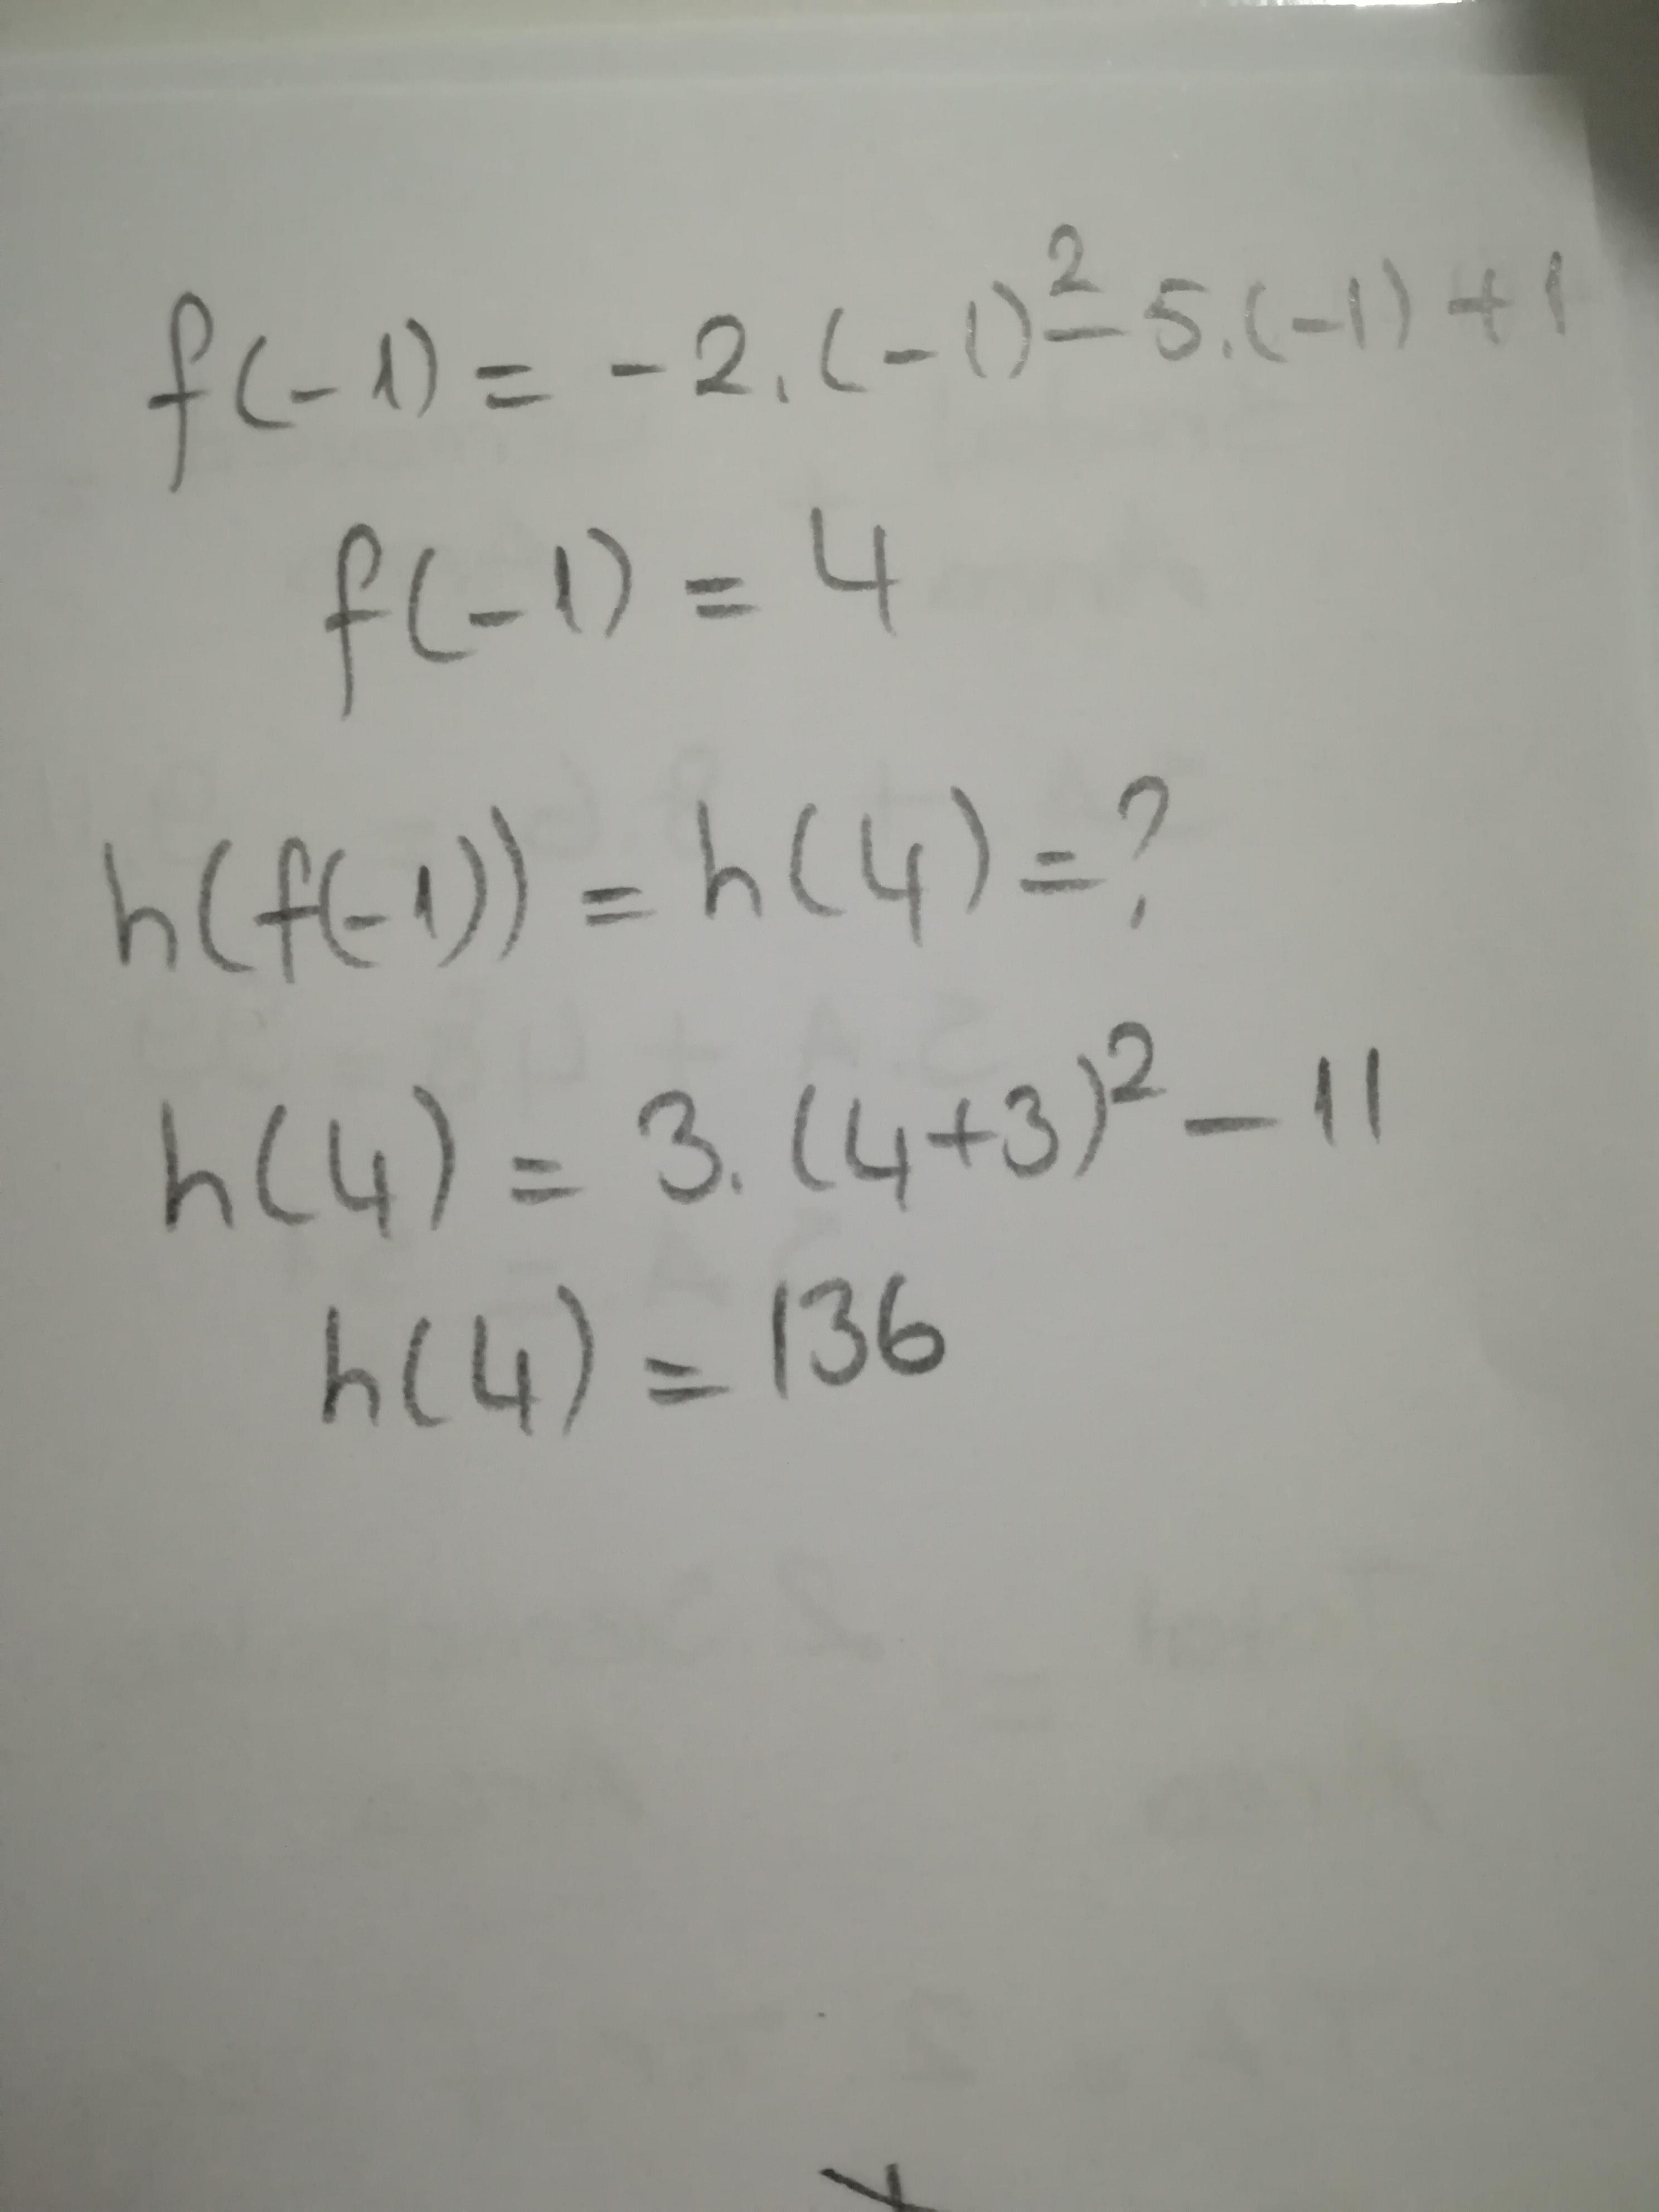 f(-1) = -2.(-1)²-5.(-1)+1
f(-1) = 4
h(f(-1)) = h(4)=?
h(4) = 3.(4+3)²-11
h(4) = 136